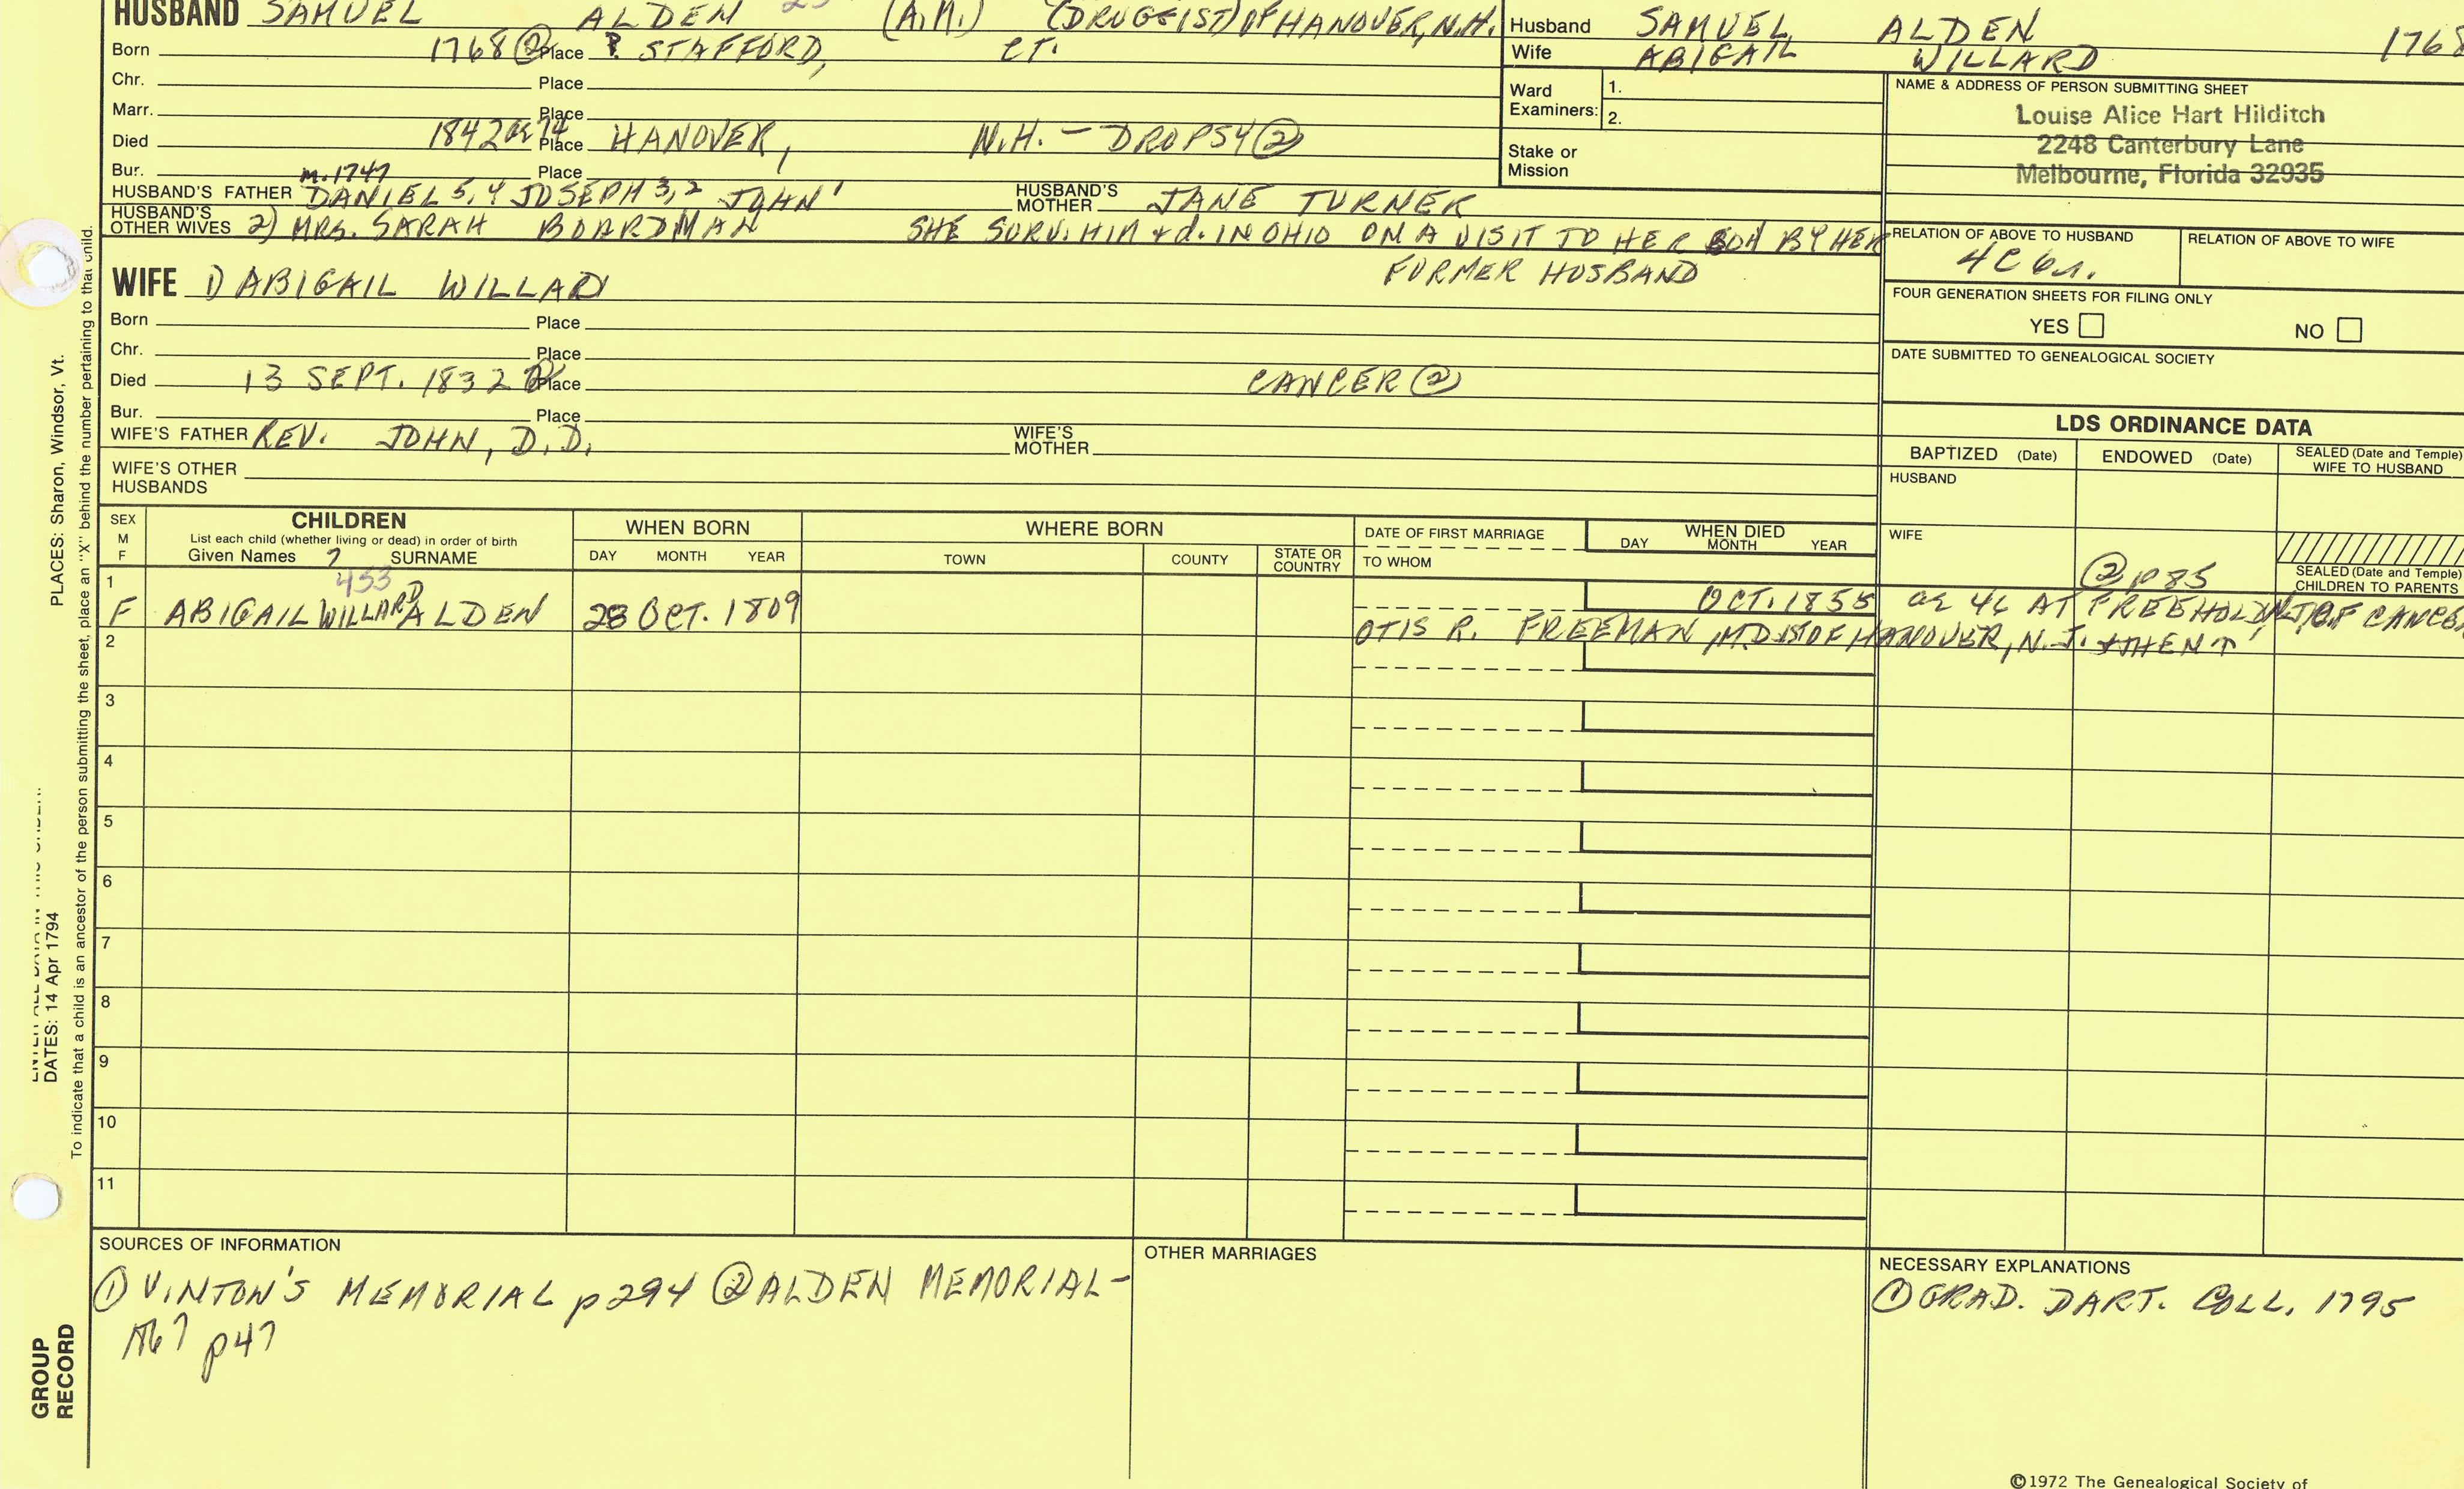 HUSBAND SAMUEL ALDEN (A.M.) (DRUGGIST) OF HANOVER, N.H.
Born 1768 ② Place ? STAFFORD, CT.
Chr. Place
Marr. Place
Died 1842 ae 74 Place HANOVER, N.H. - DROPSY ②
Bur. Place
m. 1747
HUSBAND'S FATHER DANIEL 5, 4 JOSEPH 3, 2 JOHN 1 HUSBAND'S MOTHER JANE TURNER
HUSBAND'S OTHER WIVES 2) MRS. SARAH BOARDMAN SHE SURV. HIM + d. IN OHIO ON A VISIT TO HER SON BY HER
FORMER HUSBAND
WIFE 1) ABIGAIL WILLARD
Born Place
Chr. Place
Died 13 SEPT. 1832 Place CANCER ②
Bur. Place
WIFE'S FATHER REV. JOHN, D.D. WIFE'S MOTHER
WIFE'S OTHER HUSBANDS
Husband SAMUEL ALDEN 1768
Wife ABIGAIL WILLARD
Ward Examiners: 1.
2.
Stake or Mission
NAME & ADDRESS OF PERSON SUBMITTING SHEET
Louise Alice Hart Hilditch
2248 Canterbury Lane
Melbourne, Florida 32935
RELATION OF ABOVE TO HUSBAND RELATION OF ABOVE TO WIFE
4C 6r.
FOUR GENERATION SHEETS FOR FILING ONLY
YES NO
DATE SUBMITTED TO GENEALOGICAL SOCIETY
LDS ORDINANCE DATA
BAPTIZED (Date) ENDOWED (Date) SEALED (Date and Temple) WIFE TO HUSBAND
HUSBAND
WIFE
② p85
SEALED (Date and Temple) CHILDREN TO PARENTS
SEX M F CHILDREN
List each child (whether living or dead) in order of birth
Given Names 7 SURNAME
WHEN BORN DAY MONTH YEAR
WHERE BORN TOWN COUNTY STATE OR COUNTRY
DATE OF FIRST MARRIAGE TO WHOM
WHEN DIED DAY MONTH YEAR
453
1 F ABIGAIL WILLARD ALDEN 28 OCT. 1809 OCT. 1855 ae 46 AT FREEHOLD, N.J. OF CANCER
OTIS R. FREEMAN, MD 1st OF HANOVER, N.J. + THEN ↑
2
3
4
5
6
7
8
9
10
11
SOURCES OF INFORMATION
① VINTON'S MEMORIAL p294 ② ALDEN MEMORIAL-
p47
OTHER MARRIAGES
NECESSARY EXPLANATIONS
① GRAD. DART. COLL. 1795
©1972 The Genealogical Society of
PLACES: Sharon, Windsor, Vt.
DATES: 14 Apr 1794
To indicate that a child is an ancestor of the person submitting the sheet, place an "X" behind the number pertaining to that child.
GROUP
RECORD